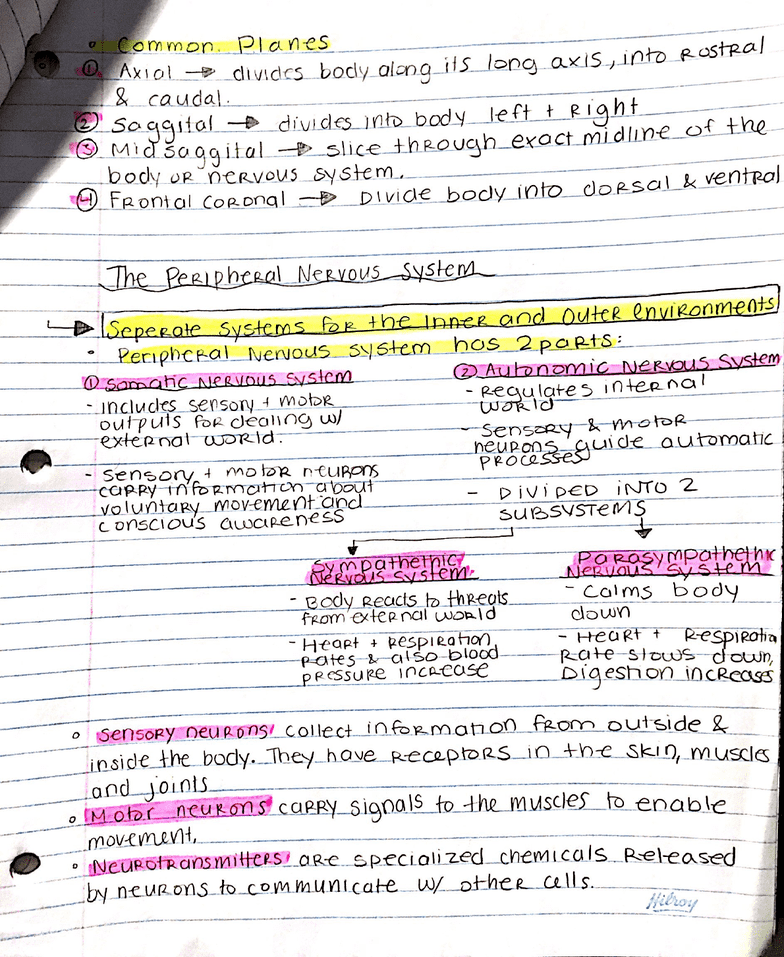 Common Planes
① Axial → divides body along its long axis, into Rostral
& caudal.
② Saggital → divides into body left + Right
③ Mid saggital → slice through exact midline of the
body or nervous system.
④ Frontal coronal → Divide body into dorsal & ventral
The Peripheral Nervous System
→ Seperate systems for the Inner and Outer environments
• Peripheral Nervous system has 2 parts:
① Somatic Nervous System
- includes sensory + motor
outputs for dealing w/
external world.
- Sensory + motor neurons
carry information about
voluntary movement and
conscious awareness
② Autonomic Nervous System
- Regulates internal
world
- Sensory & motor
neurons guide automatic
processes
- Divided into 2
subsystems
Sympathethic
Nervous system.
- Body Reacts to threats
from external world
- Heart + Respiration
Rates & also blood
pressure increase
Parasympathethic
Nervous System
- Calms body
down
- Heart + Respiratio
Rate slows down,
Digestion increases
• Sensory neurons collect information from outside &
inside the body. They have receptors in the skin, muscles
and joints
• Motor neurons carry signals to the muscles to enable
movement.
• Neurotransmitters are specialized chemicals Released
by neurons to communicate w/ other cells.
Hilroy